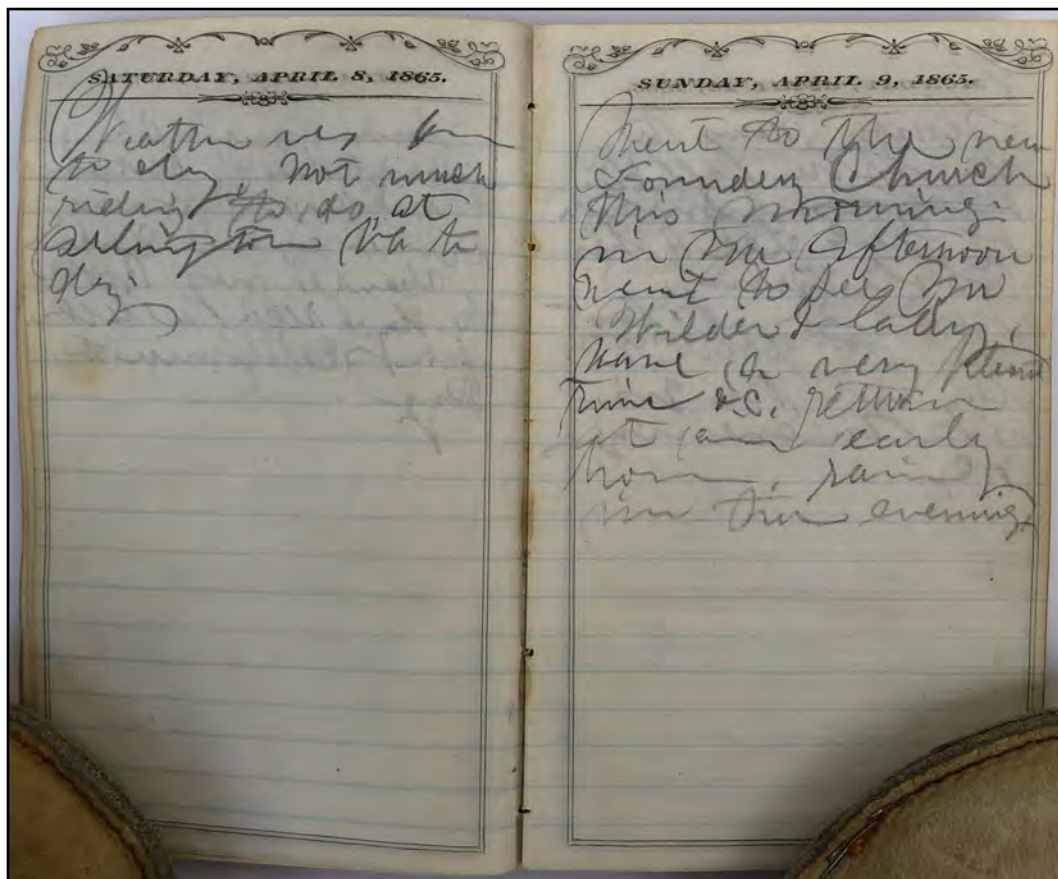 SATURDAY, APRIL 8, 1865.
Weather
to day. Not much
riding to do at
Arlington Va to
day.
SUNDAY, APRIL 9, 1865.
Went to the new
Foundery Church
this morning.
in the afternoon
went to see Mr
Wilder & lady,
have a very
time &c. return
at an early
hour. rain
in the evening.